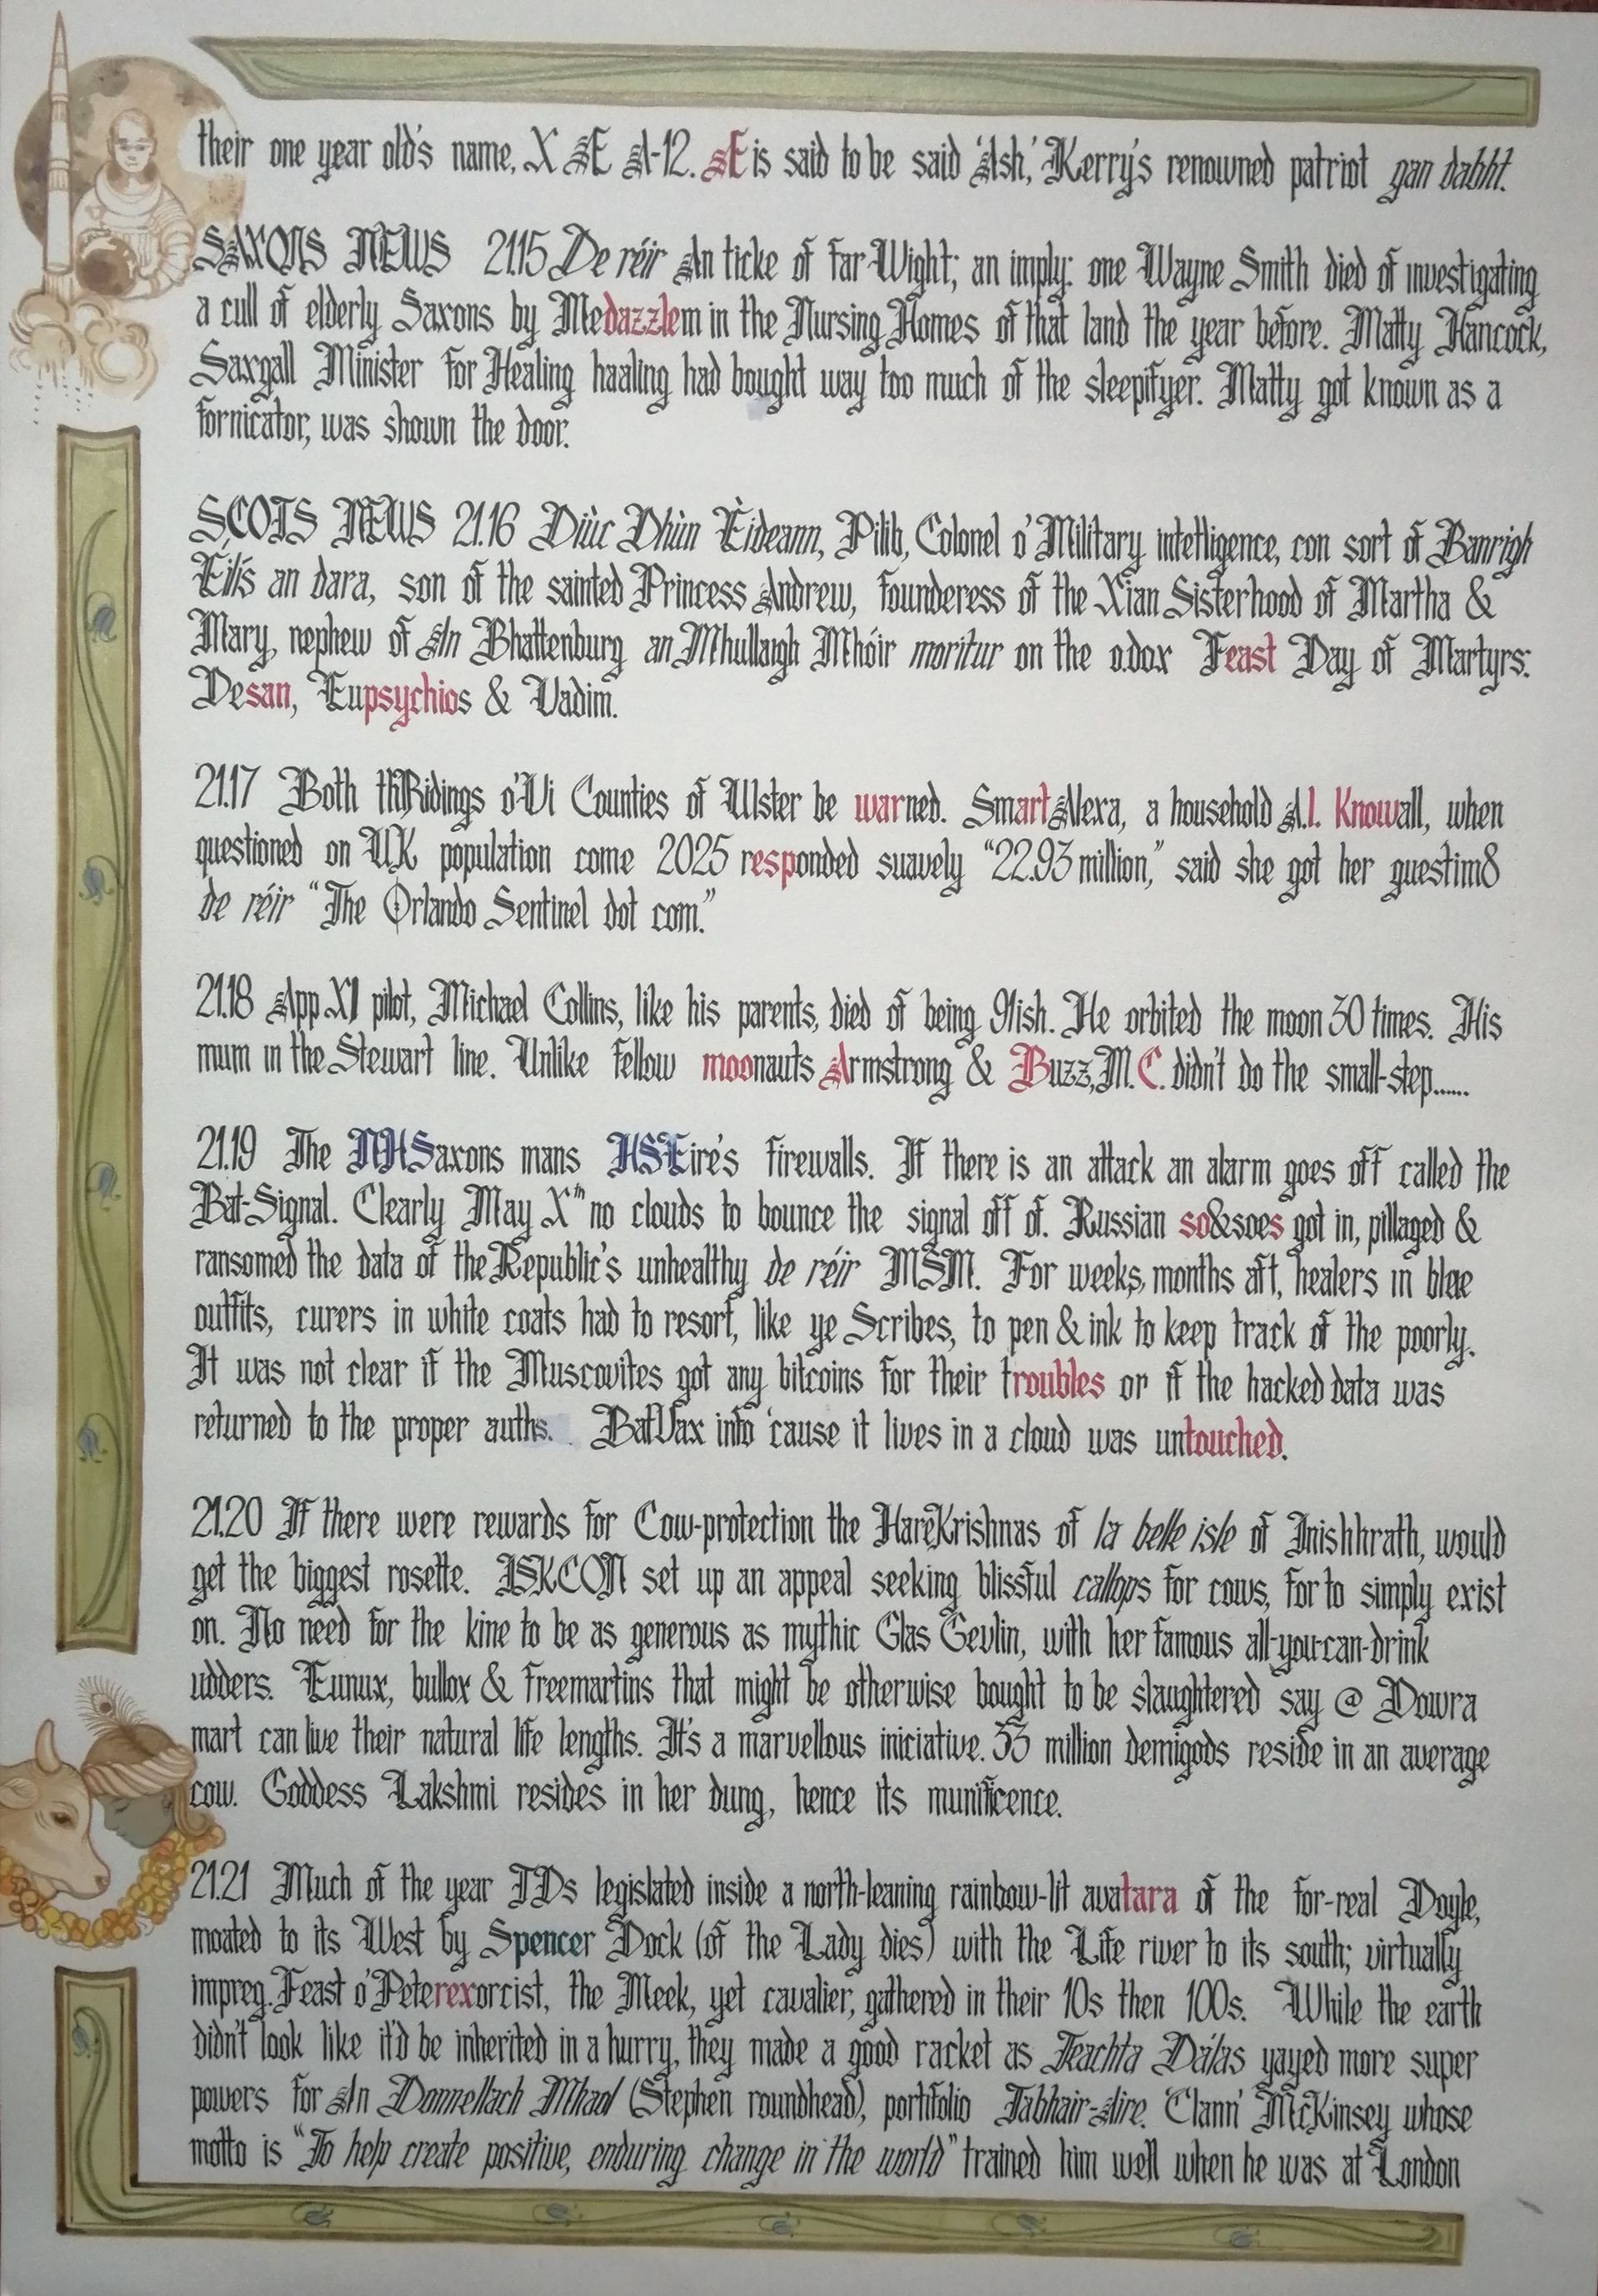 their one year old's name, X Æ A-12. Æ is said to be said 'Ash,' Kerry's renowned patriot gan dabht.
SAXONS NEWS 21.15 De réir An ticke of far Wight; an imply: one Wayne Smith died of investigating
a cull of elderly Saxons by Medazzlem in the Nursing Homes of that land the year before. Matty Hancock,
Saxgall Minister for Healing haaling had bought way too much of the sleepifyer. Matty got known as a
fornicator, was shown the door.
SCOTS NEWS 21.16 Diùc Dhùn Èideann, Pilib, Colonel o' Military intelligence, con sort of Banrigh
Eilís an dara, son of the sainted Princess Andrew, founderess of the Xian Sisterhood of Martha &
Mary, nephew of An Bhattenburg an Mhullaigh Mhóir moritur on the o.dox Feast Day of Martyrs:
Desan, Eupsychios & Vadim.
21.17 Both thRidings o' Vi Counties of Ulster be warned. Smart Alexa, a household A.I. Knowall, when
questioned on UK population come 2025 responded suavely "22.93 million," said she got her guestim8
de réir "The Orlando Sentinel dot com."
21.18 App XI pilot, Michael Collins, like his parents, died of being 91ish. He orbited the moon 30 times. His
mum in the Stewart line. Unlike fellow moonauts Armstrong & Buzz, M.C. didn't do the small-step......
21.19 The NHSaxons mans HSEire's firewalls. If there is an attack an alarm goes off called the
Bat-Signal. Clearly May Xth no clouds to bounce the signal off of. Russian so&soes got in, pillaged &
ransomed the data of the Republic's unhealthy de réir MSM. For weeks, months aft, healers in blue
outfits, curers in white coats had to resort, like ye Scribes, to pen & ink to keep track of the poorly.
It was not clear if the Muscovites got any bitcoins for their troubles or if the hacked data was
returned to the proper auths. BatVax info 'cause it lives in a cloud was untouched.
21.20 If there were rewards for Cow-protection the HareKrishnas of la belle isle of Inishhrath, would
get the biggest rosette. ISKCON set up an appeal seeking blissful callops for cows, for to simply exist
on. No need for the kine to be as generous as mythic Glas Gevlin, with her famous all-you-can-drink
udders. Eunux, bullox & freemartins that might be otherwise bought to be slaughtered say @ Dowra
mart can live their natural life lengths. It's a marvellous iniciative. 33 million demigods reside in an average
cow. Goddess Lakshmi resides in her dung, hence its munificence.
21.21 Much of the year TDs legislated inside a north-leaning rainbow-lit avatara of the for-real Doyle,
moated to its West by Spencer Dock (of the Lady dies) with the Life river to its south; virtually
impreg. Feast o' Peterexorcist, the Meek, yet cavalier, gathered in their 10s then 100s. While the earth
didn't look like it'd be inherited in a hurry, they made a good racket as Teachta Dálas yayed more super
powers for An Donnellach Mhaol (Stephen roundhead), portifolio Tabhair-Aire. 'Clann' McKinsey whose
motto is "To help create positive, enduring change in the world" trained him well when he was at London